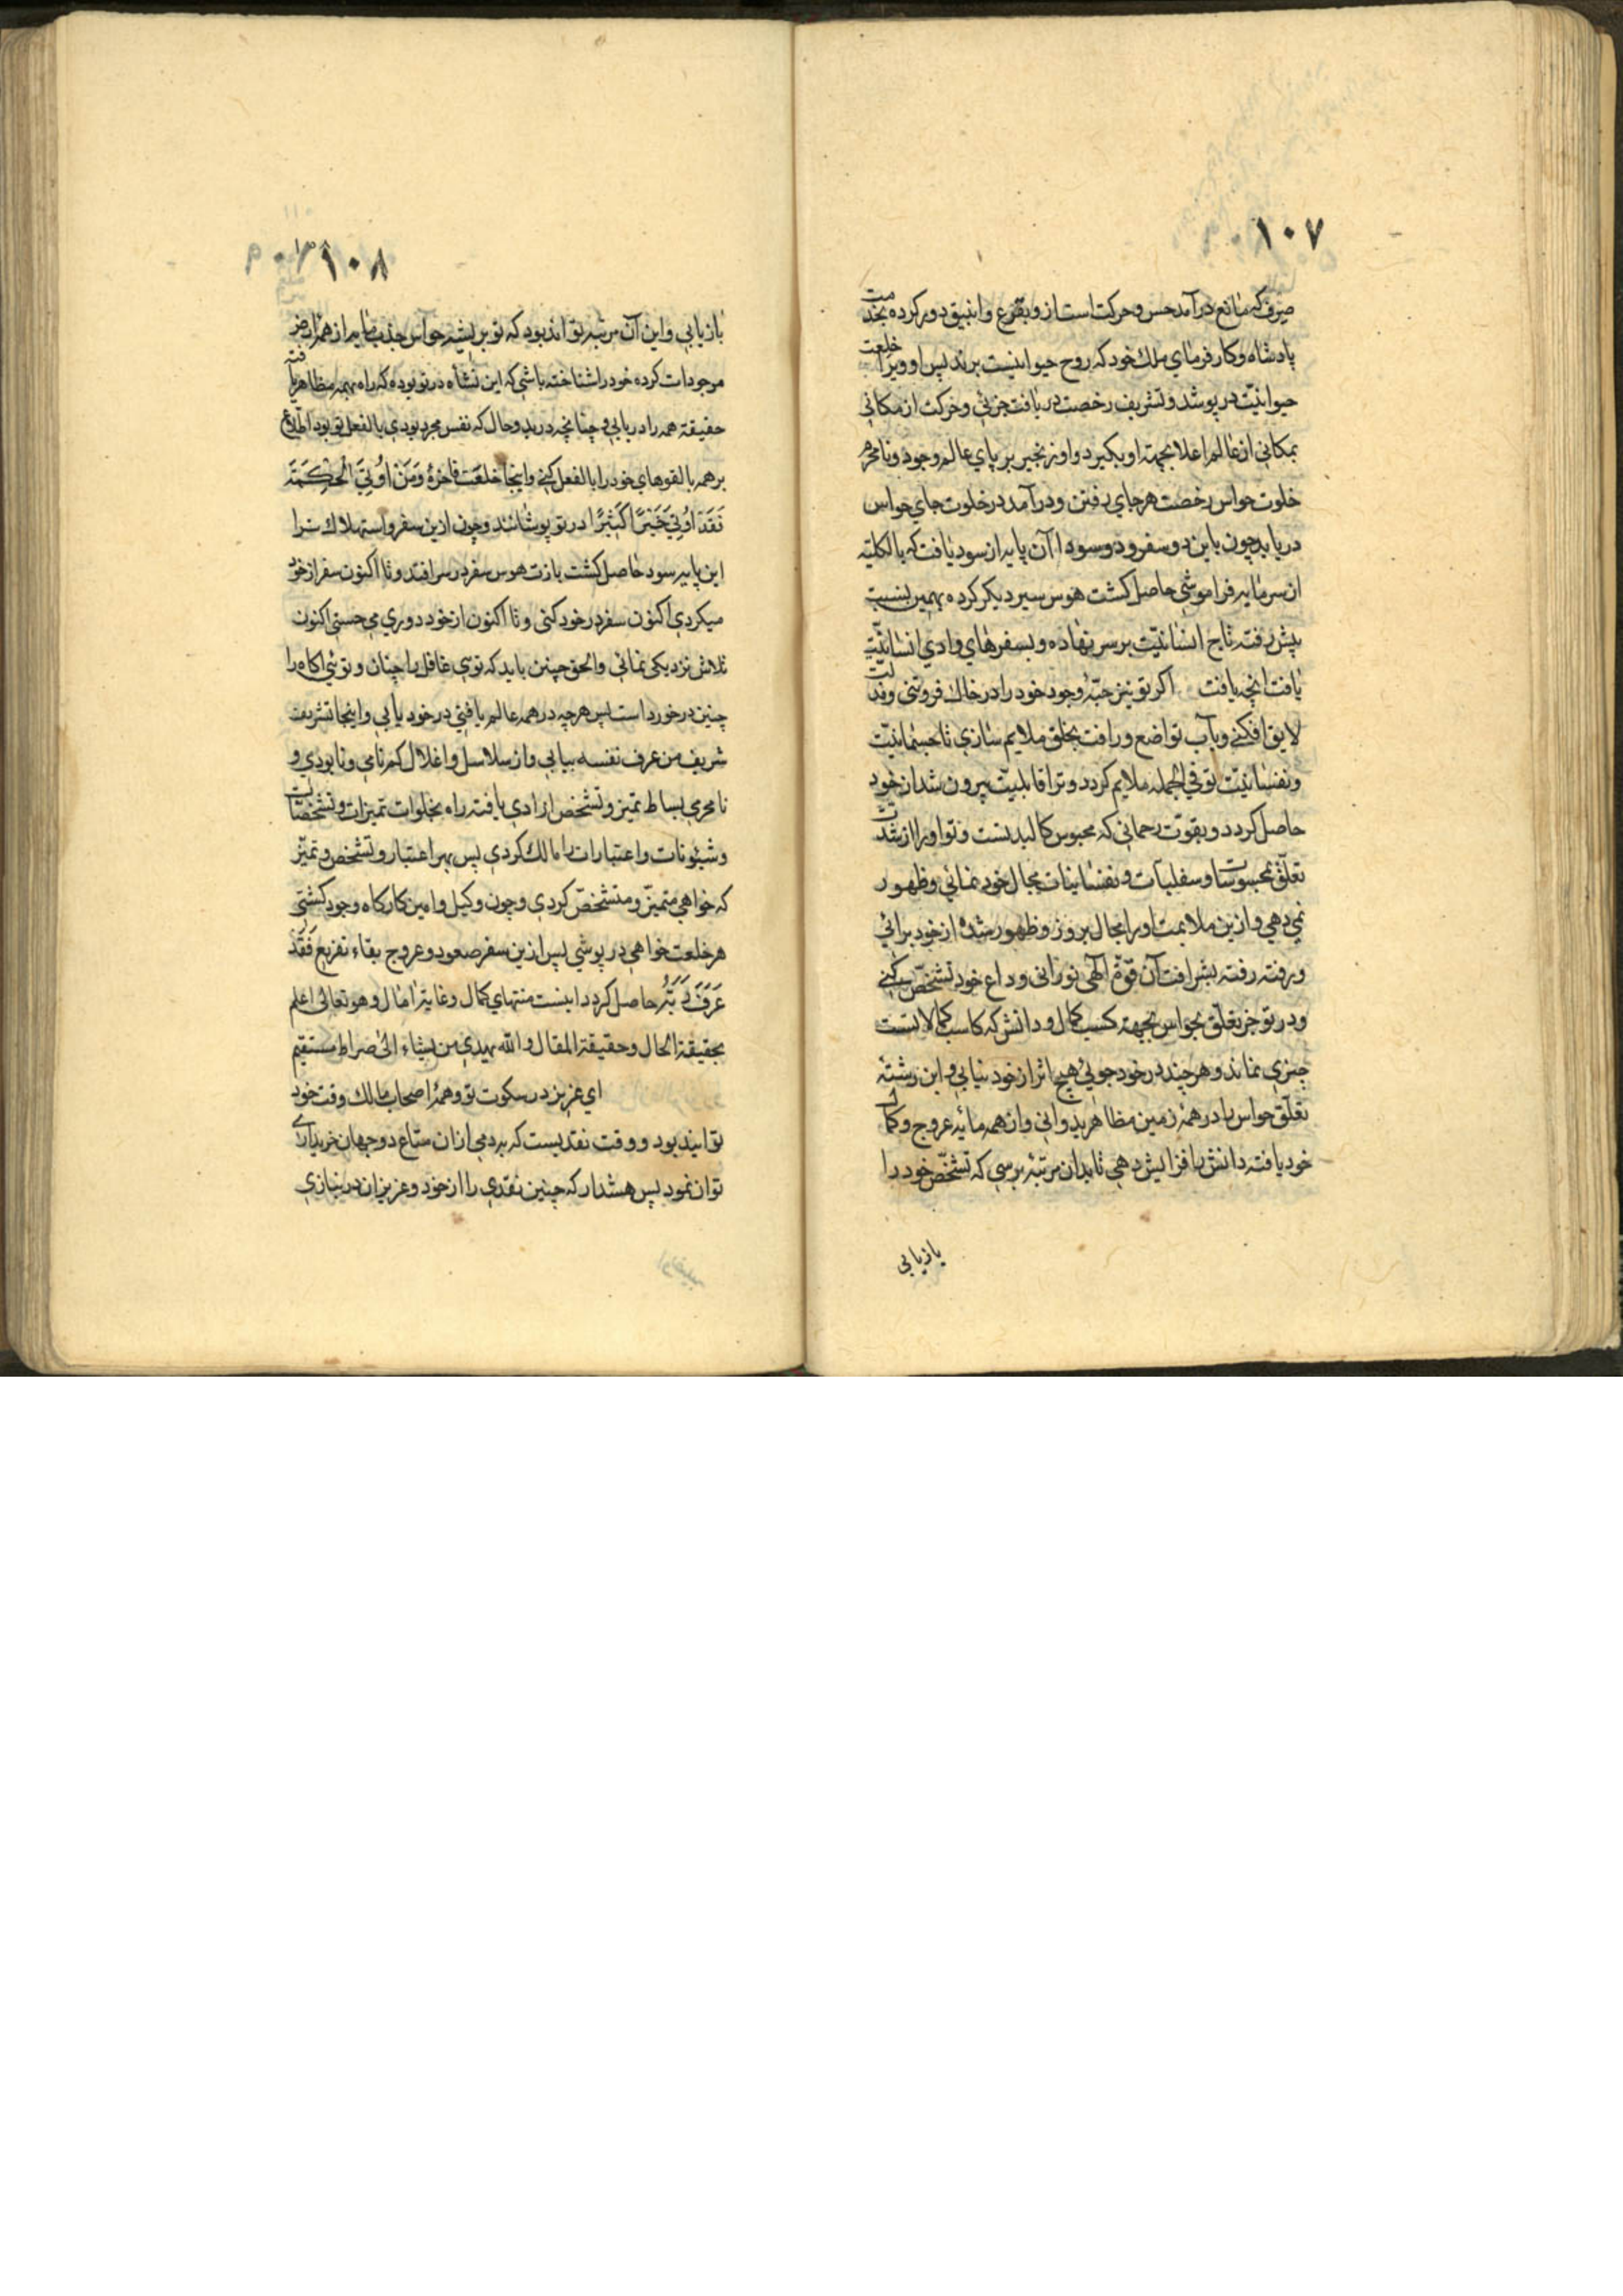 ۱۰۷
صرف که مانع درآمد حس و حرکت است از و بقرع و انبیق دور کرده بخدمت
پادشاه و کارفرمای ملک خود که روح حیوانیست برند پس او ویرا خلعت
حیوانیّت درپوشد و تشریف رخصت دریافت جزئی و حرکت از مکانی
بمکانی از عالم اعلا بجهته او بگیرد و او زنجیر بر پای عالم وجود و نامحرم
خلوت حواس رخصت هر جای رفتن و درآمد در خلوت جای حواس
دریابد چون باین دو سفر و دو سودا آن پایه از سود یافت که بالکلیته
از سرمایه فراموشی حاصل کشت هوس سیر دیکر کرده بهمین نسبت
پیش رفته تاج انسانیّت بر سر نهاده و بسفرهای وادی انسانیّت
یافت آنچه یافت اکر تو نیز حبّهٔ وجود خود را در خاک فروتنی و مذلّت
لایق افکنی و بآب تواضع و رافت بخلق ملایم سازی تا جسمانیّت
و نفسانیّت تو فی الجمله ملایم کردد و ترا قابلیّت بیرون شد از خود
حاصل کردد و بقوّت رحمانی که محبوس کالبد تست و تو او را از شدّت
تعلّق بمحسوسات و سفلیات و نفسانیات مجال خودنمائی و ظهور
نمیدهی و ازین ملایمت او را مجال بروز و ظهور شده از خود برائی
و رفته رفته بشرافت آن قوّهٔ الٓهی نورانی وداع خود تشخّص کنی
و در تو جز تعلّق بحواس بجهته کسب کمال و دانش که کاسب کمالاتست
چیزی نماند و هر چند در خود جوئی هیچ اثر از خود نیابی و این رشتهٔ
تعلّق حواس را در همهٔ زمین مظاهر بدوانی و از همه مائیه عروج و کمال
خود یافته دانش را افزایش دهی تا بدان مرتبه برسی که تشخّص خود را
بازیابی
۱۰۸
بازیابی و این آن مرتبه تواند بود که تو بریشهٔ حواس جذب مایه از همهٔ ارض
موجودات کرده خود را شناخته باشی که این نشاه در تو بوده که راه بهمه مظاهر یافته
حقیقة همه را دریابی و چنانچه در بدو حال که نفس مجرد بودی بالفعل تو بود اطلاع
بر همه بالقوهای خود را بالفعل کنی و اینجا خلعت فاخرهٔ وَمَنْ اُوتِيَ الْحِكْمَةَ
فَقَدْ اُوتِيَ خَيْرًا كَثِيرًا در تو پوشانند و چون ازین سفر و استهلاک ترا
این پایه سود حاصل کشت بازت هوس سفر در سر افتد و تا اکنون سفر از خود
میکردی اکنون سفر در خود کنی و تا اکنون از خود دوری می جستی اکنون
تلاش نزدیکی نمائی والحق چنین باید که توی غافل را چنان و توئی اکاه را
چنین در خورد است پس هرچه در همه عالم یافتی در خود یابی و اینجا تشریف
شریف من عرف نفسه بیابی و از سلاسل و اغلال کم نامی و نابودی و
نامحرمی بساط تمیز و تشخص ازادی یافته راه بخلوات تمیزات و تشخّصات
و شیونات و اعتبارات را مالک کردی پس بهر اعتبار و تشخص و تمیّز
که خواهی متمیّز و متشخّص کردی و چون وکیل و امین کارکاه وجود کشتی
هر خلعت خواهی در پوشی پس ازین سفر صعود و عروج بقاء تفریع فَقَدْ
عَرَفَ رَبَّهُ حاصل کردد اینست منتهای کمال و غایة امال و هو تعالی اعلم
بحقیقة الحال و حقیقة المقال والله یهدی من یشاء الی صراط مستقیم
ای عزیز در سکوت تو و همهٔ اصحاب مالک وقت خود
توانید بود و وقت نقدیست که به دمی ازان متاع دو جهان خریداری
توان نمود پس هشدار که چنین نقدی را از خود و عزیزان در نبازی